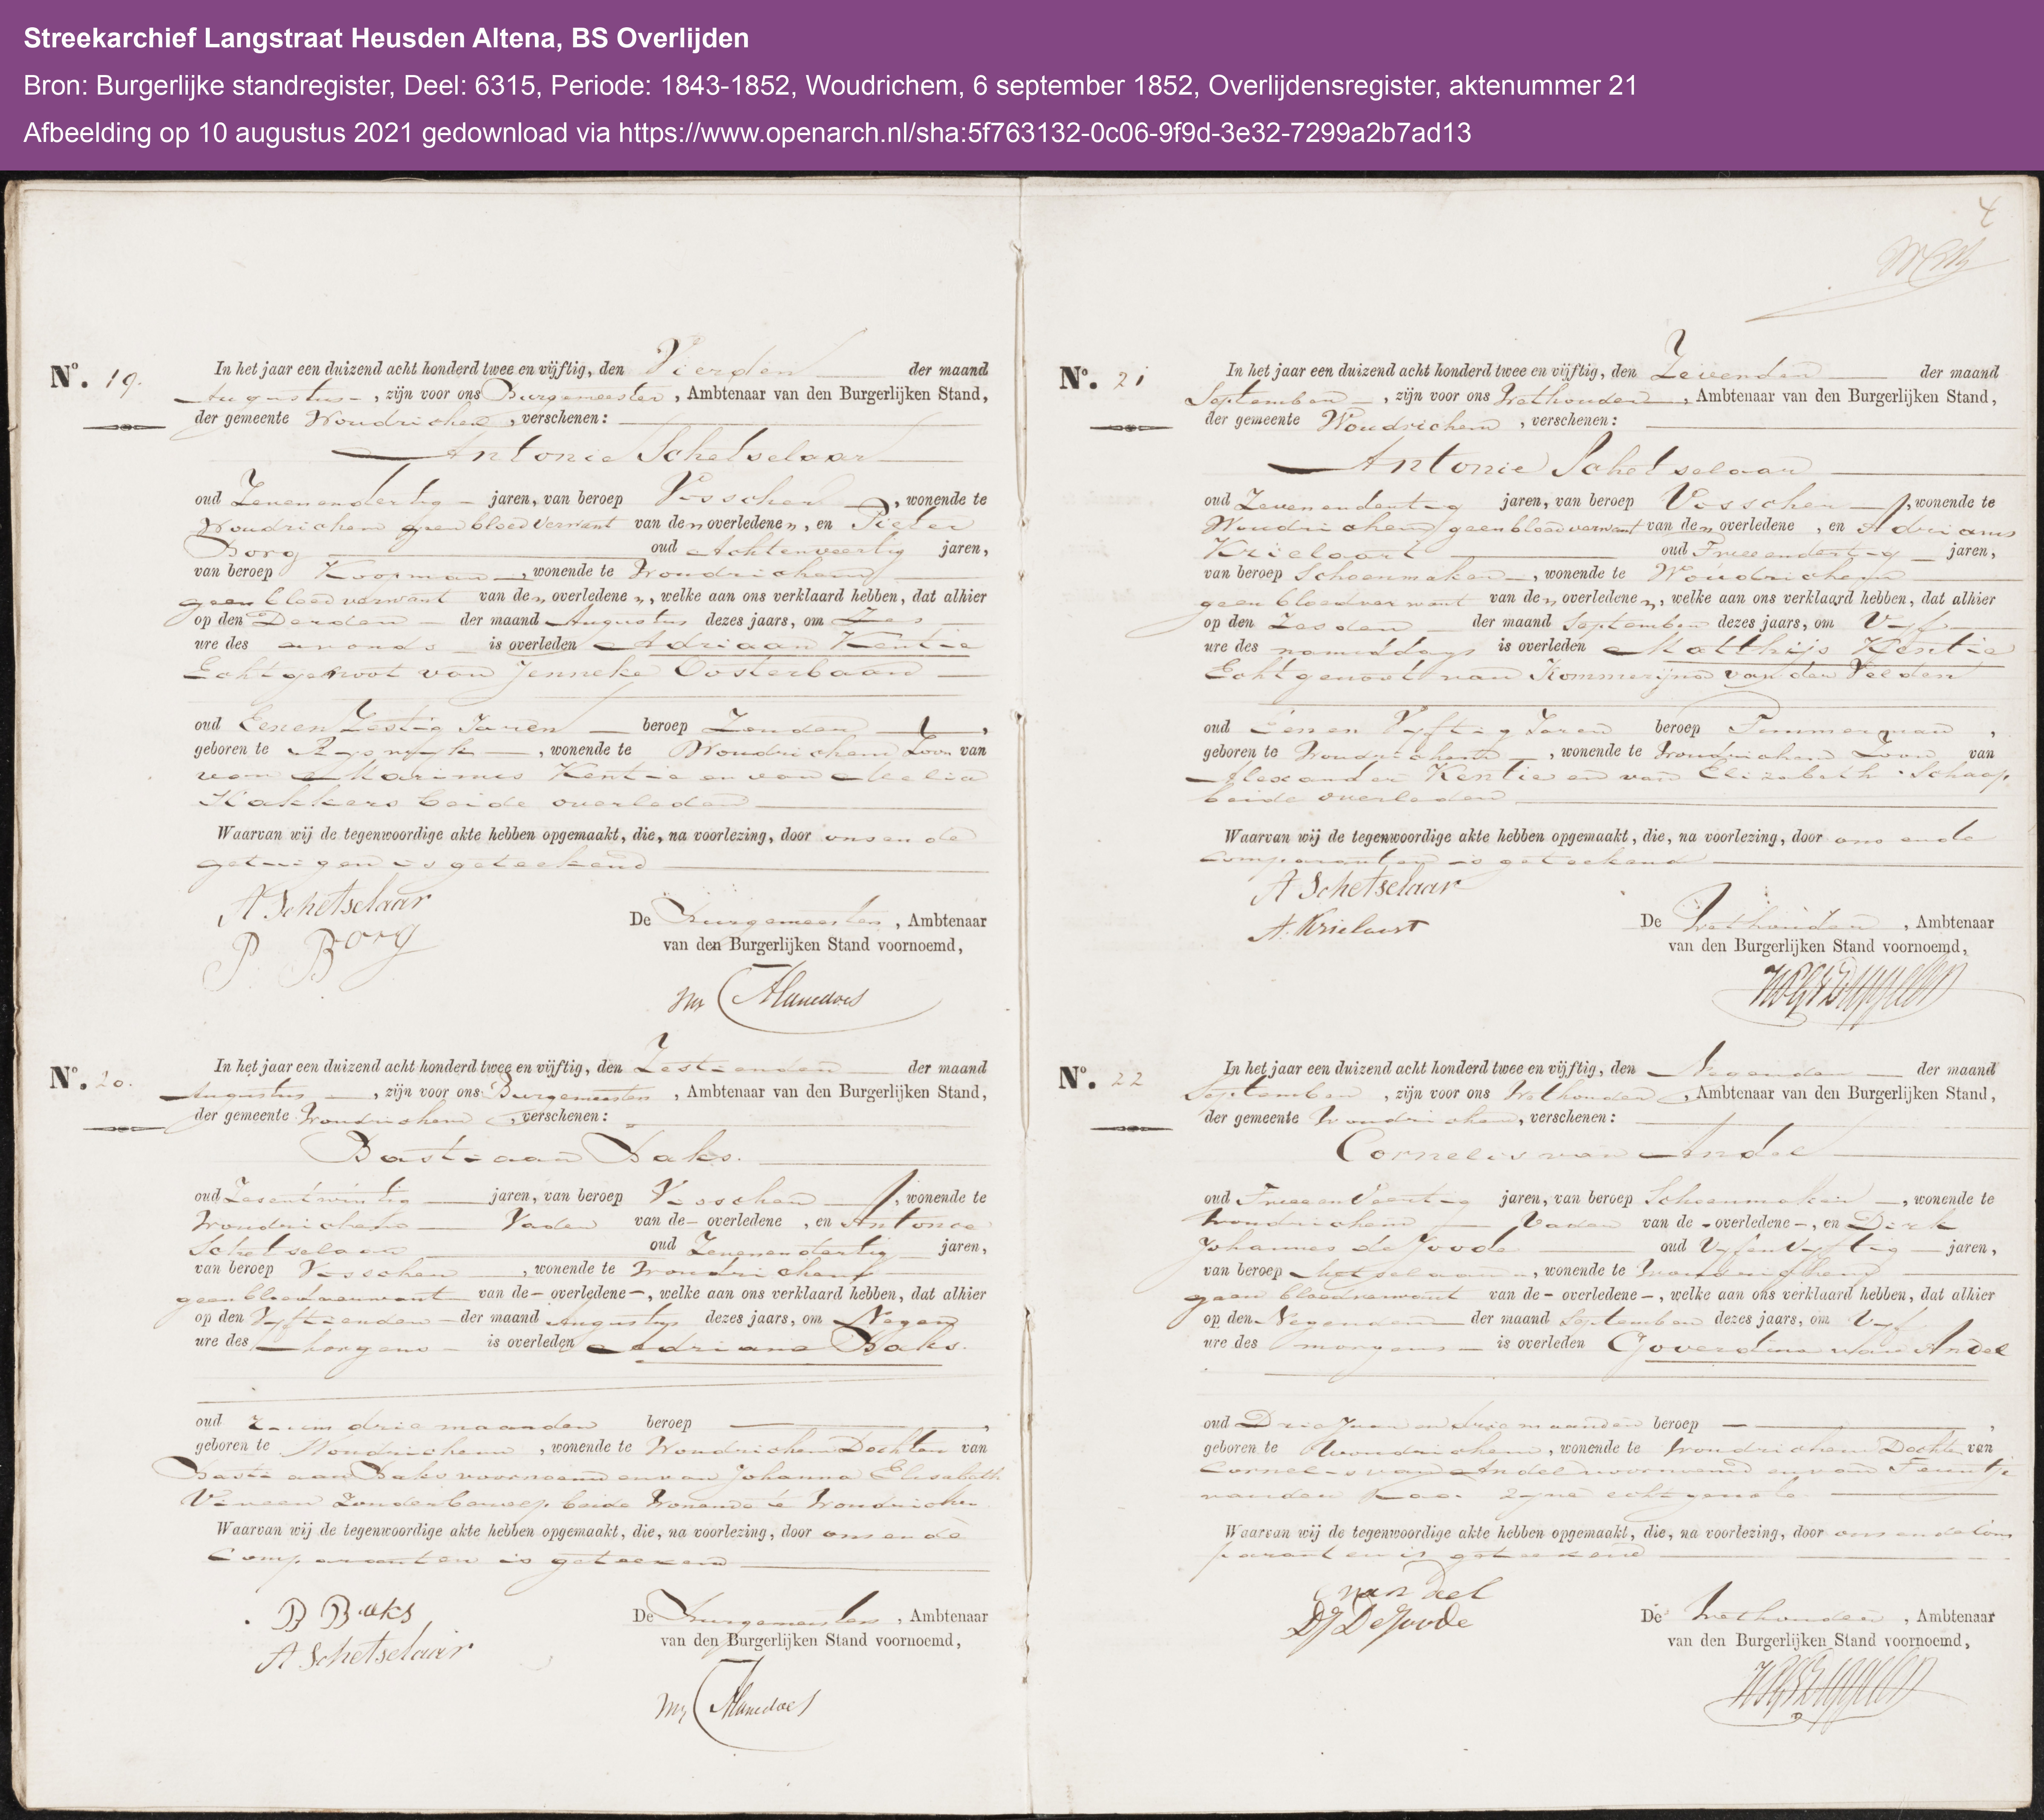 Streekarchief Langstraat Heusden Altena, BS Overlijden
Bron: Burgerlijke standregister, Deel: 6315, Periode: 1843-1852, Woudrichem, 6 september 1852, Overlijdensregister, aktenummer 21
Afbeelding op 10 augustus 2021 gedownload via https://www.openarch.nl/sha:5f763132-0c06-9f9d-3e32-7299a2b7ad13
No. 19.
In het jaar een duizend acht honderd twee en vijftig, den Vierden der maand
Augustus, zijn voor ons Burgemeester, Ambtenaar van den Burgerlijken Stand,
der gemeente Woudrichem, verschenen:
Antonie Schetselaar
oud Zevenendertig jaren, van beroep Visscher, wonende te
Woudrichem geen bloedverwant van den overledenen, en Pieter
Borg oud Achtenveertig jaren,
van beroep Koopman, wonende te Woudrichem
geen bloedverwant van den overledenen, welke aan ons verklaard hebben, dat alhier
op den Derden der maand Augustus dezes jaars, om Zes
ure des avonds is overleden Adriaan Kentie
Echtgenoot van Jenneke Oosterbaan
oud Eenen Zestig Jaren beroep Zonder,
geboren te Rijswijk, wonende te Woudrichem Zoon van
van Marinus Kentie en van Melia
Kakkers beide overleden
Waarvan wij de tegenwoordige akte hebben opgemaakt, die, na voorlezing, door ons en de
getuigen is geteekend
A Schetselaar
P. Borg
De Burgemeester, Ambtenaar
van den Burgerlijken Stand voornoemd,
No. 20.
In het jaar een duizend acht honderd twee en vijftig, den Zestienden der maand
Augustus, zijn voor ons Burgemeester, Ambtenaar van den Burgerlijken Stand,
der gemeente Woudrichem, verschenen:
Bastiaan Baks.
oud Zesentwintig jaren, van beroep Visscher, wonende te
Woudrichem Vader van de overledene, en Antonie
Schetselaar oud Zevenendertig jaren,
van beroep Visscher, wonende te Woudrichem
geen bloedverwant van de overledene, welke aan ons verklaard hebben, dat alhier
op den Vijftienden der maand Augustus dezes jaars, om Negen
ure des morgens is overleden Adriana Baks.
oud ruim drie maanden beroep
geboren te Woudrichem, wonende te Woudrichem Dochter van
Bastiaan Baks voornoemd en van Johanna Elisabeth
Zonder beroep beide Wonende te Woudrichem
Waarvan wij de tegenwoordige akte hebben opgemaakt, die, na voorlezing, door ons en de
Comparanten is geteekend
B Baks
A Schetselaar
De Burgemeester, Ambtenaar
van den Burgerlijken Stand voornoemd,
4
No. 21
In het jaar een duizend acht honderd twee en vijftig, den Zevenden der maand
September, zijn voor ons Wethouder, Ambtenaar van den Burgerlijken Stand,
der gemeente Woudrichem, verschenen:
Antonie Schetselaar
oud Zevenendertig jaren, van beroep Visscher, wonende te
Woudrichem geen bloedverwant van den overledene, en Adrianus
Krielaart oud Tweeendertig jaren,
van beroep Schoenmaker, wonende te Woudrichem
geen bloedverwant van den overledenen, welke aan ons verklaard hebben, dat alhier
op den Zesden der maand September dezes jaars, om Vijf
ure des namiddags is overleden Matthijs Kentie
Echtgenoot van Kommerijna van der Velden
oud Eenen Vijftig Jaren beroep Timmerman,
geboren te Woudrichem, wonende te Woudrichem Zoon van
Alexander Kentie en van Elizabeth Schaap,
beide overleden
Waarvan wij de tegenwoordige akte hebben opgemaakt, die, na voorlezing, door ons en de
Comparanten is geteekend
A Schetselaar
A. Krielaart
De Wethouder, Ambtenaar
van den Burgerlijken Stand voornoemd,
No. 22
In het jaar een duizend acht honderd twee en vijftig, den Negenden der maand
September, zijn voor ons Wethouder, Ambtenaar van den Burgerlijken Stand,
der gemeente Woudrichem, verschenen:
Cornelis van Andel
oud Tweeen Veertig jaren, van beroep Schoenmaker, wonende te
Woudrichem Vader van de overledene, en Dirk
Johannes de Joode oud Vijfenvijftig jaren,
van beroep Metselaar, wonende te Woudrichem
geen bloedverwant van de overledene, welke aan ons verklaard hebben, dat alhier
op den Negenden der maand September dezes jaars, om Vijf
ure des morgens is overleden Goverdina van Andel
oud Drie Jaren en drie maanden beroep
geboren te Woudrichem, wonende te Woudrichem Dochter van
Cornelis van Andel voornoemd en van Teuntje
van der zijne echtgenote
Waarvan wij de tegenwoordige akte hebben opgemaakt, die, na voorlezing, door ons en de Com
paranten is geteekend
DJ De Joode
De Wethouder, Ambtenaar
van den Burgerlijken Stand voornoemd,